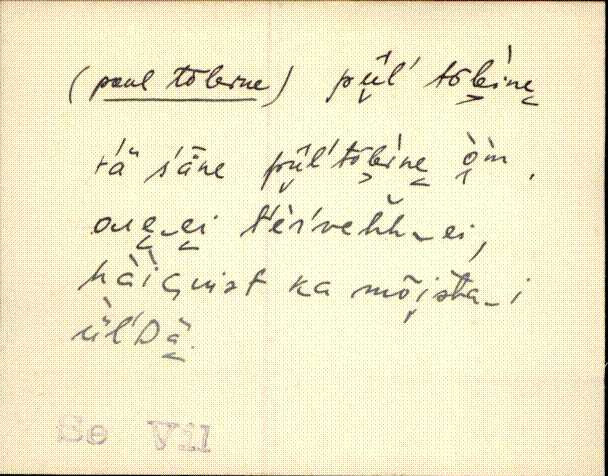 (poul tobene) pȗ̬l' tobìne
t'ä s'äne pȗ̬l'tobìne ò̬m,
oue-ei t'èrvehh-ei,
hàiguist ka mõista-i
ül'Dä.
Se Vil